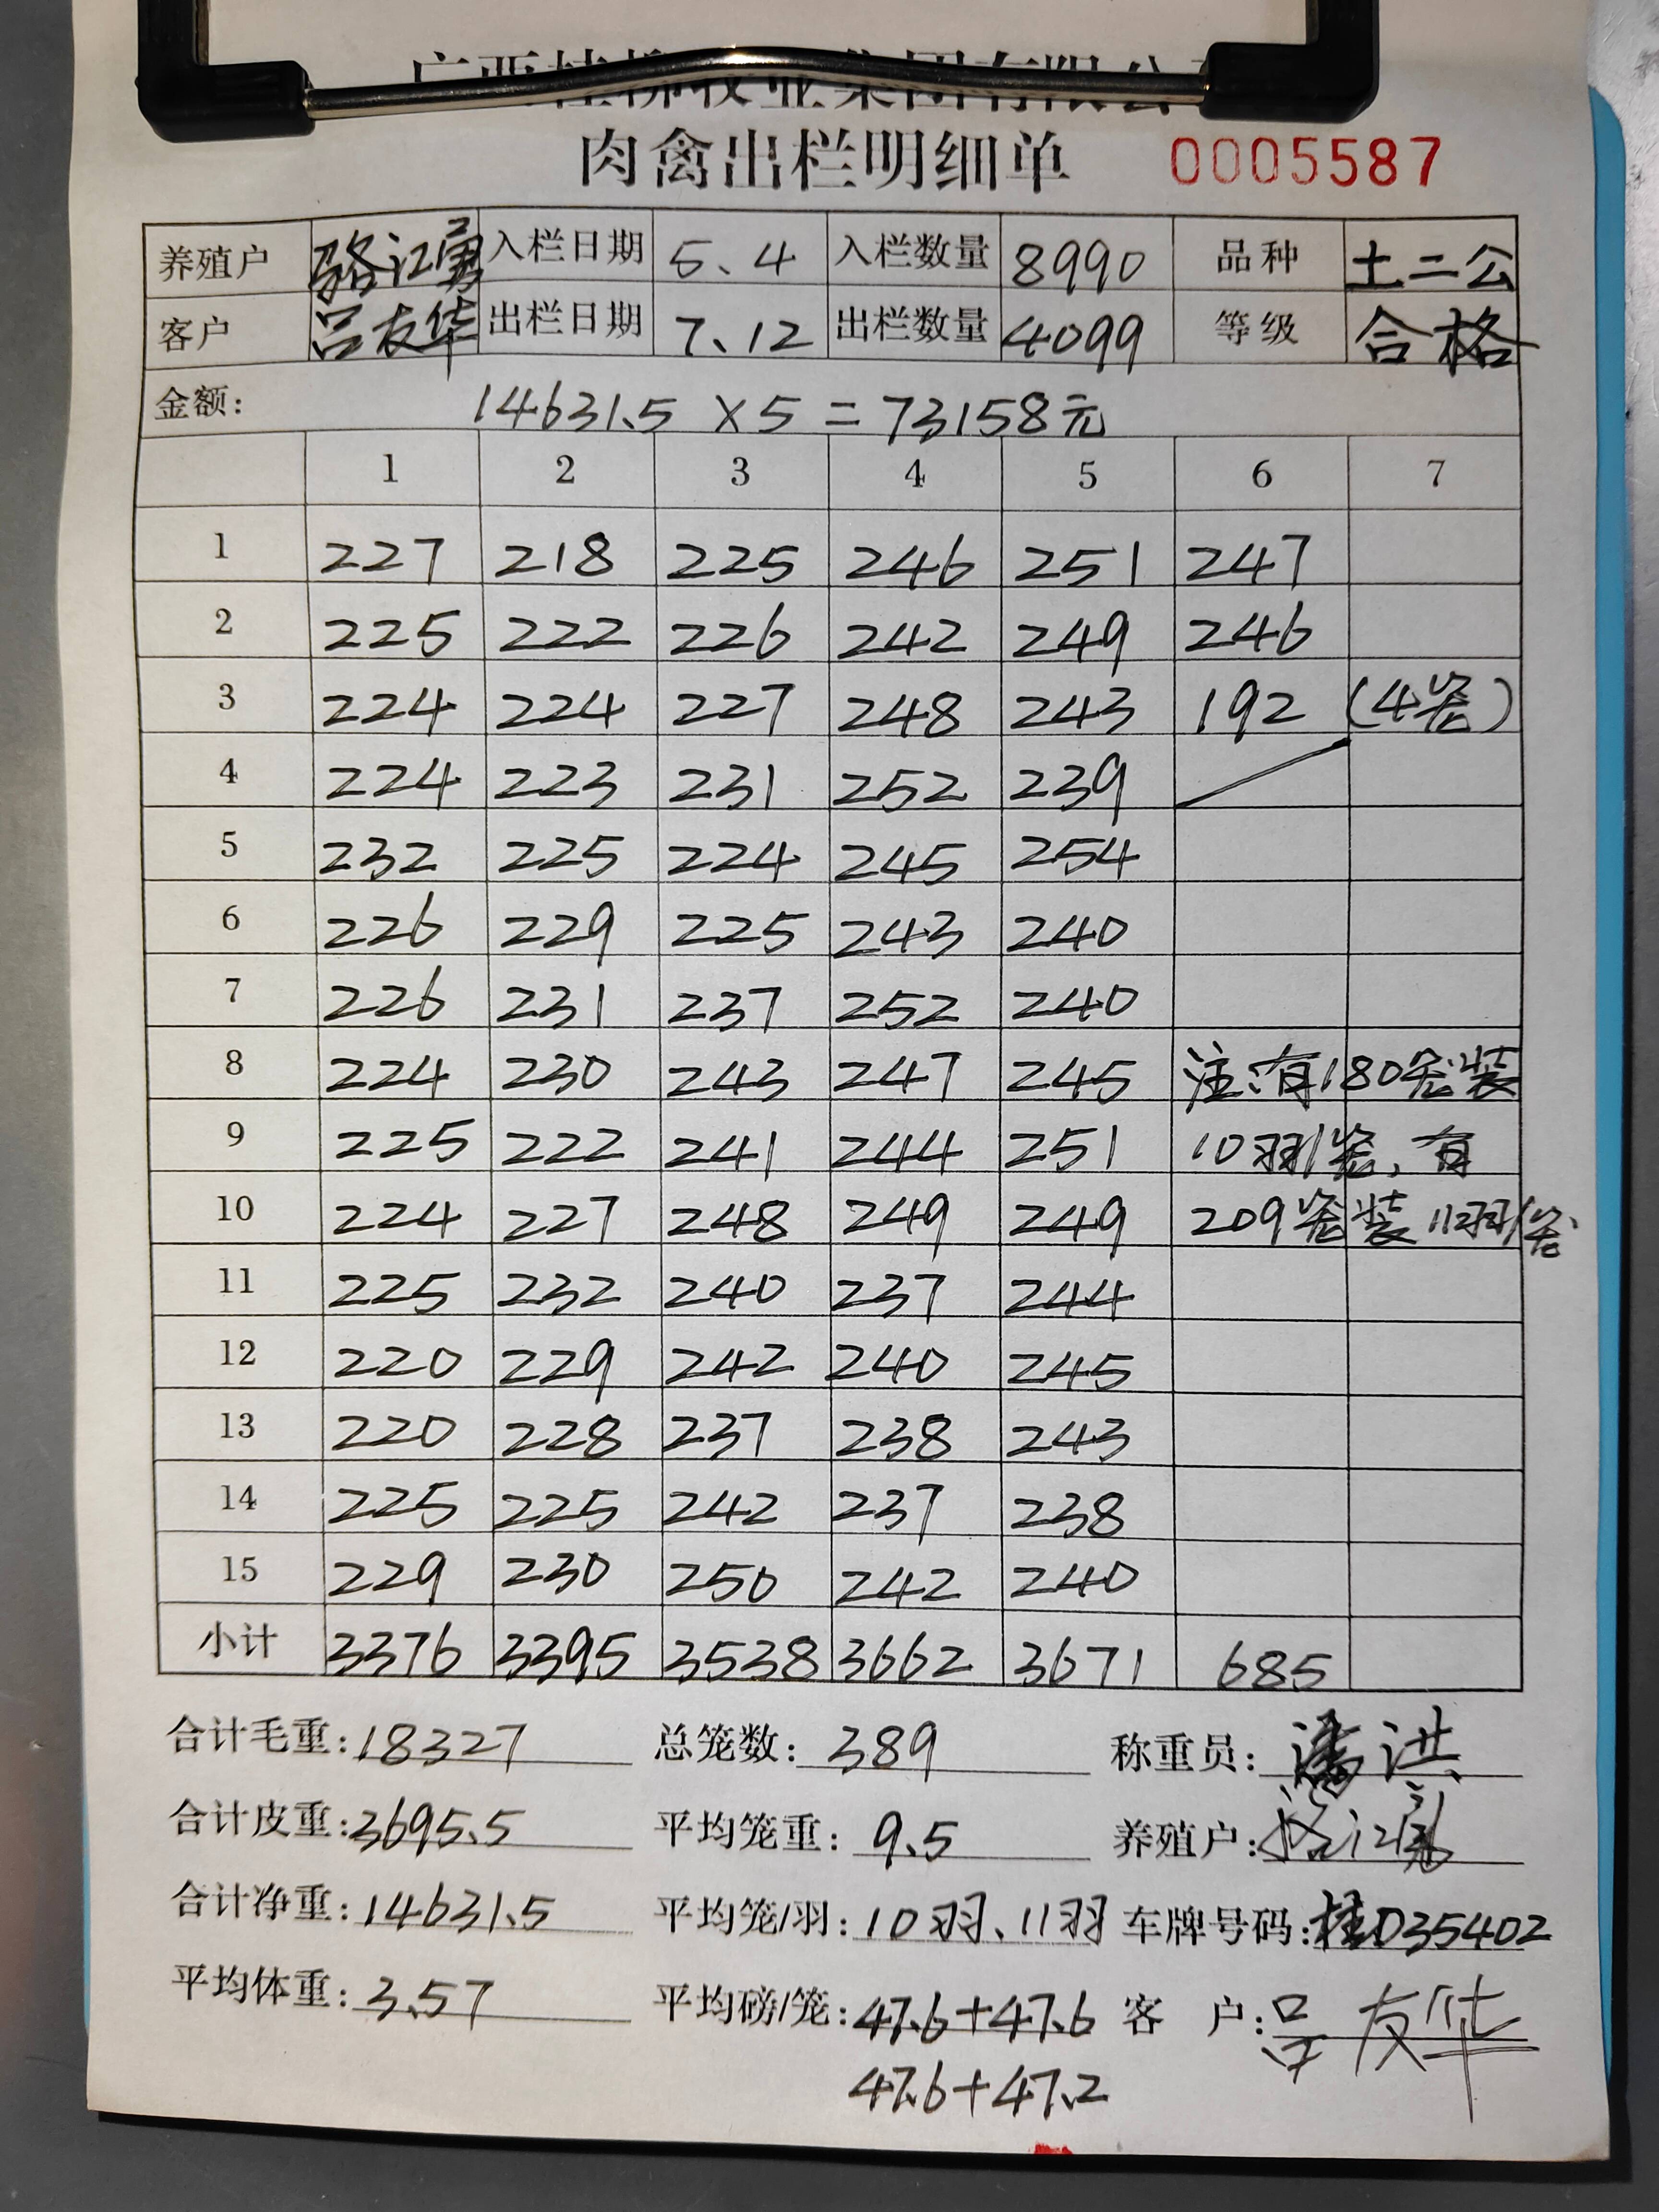 肉禽出栏明细单 0005587
养殖户 骆江勇 入栏日期 5.4 入栏数量 8990 品种 土二公
客户 吕友华 出栏日期 7.12 出栏数量 4099 等级 合格
金额: 14631.5 × 5 = 73158元
1 2 3 4 5 6 7
1 227 218 225 246 251 247
2 225 222 226 242 249 246
3 224 224 227 248 243 192 (4笼)
4 224 223 231 252 239
5 232 225 224 245 254
6 226 229 225 243 240
7 226 231 237 252 240
8 224 230 243 247 245 注:有180笼装
9 225 222 241 244 251 10羽/笼、有
10 224 227 248 249 249 209笼装11羽/笼
11 225 232 240 237 244
12 220 229 242 240 245
13 220 228 237 238 243
14 225 225 242 237 238
15 229 230 250 242 240
小计 3376 3395 3538 3662 3671 685
合计毛重:18327 总笼数: 389 称重员: 潘洪
合计皮重:3695.5 平均笼重: 9.5 养殖户:
合计净重:14631.5 平均笼/羽:10羽、11羽 车牌号码:桂D35402
平均体重:3.57 平均磅/笼:47.6+47.6 客 户:吕友华
47.6+47.2